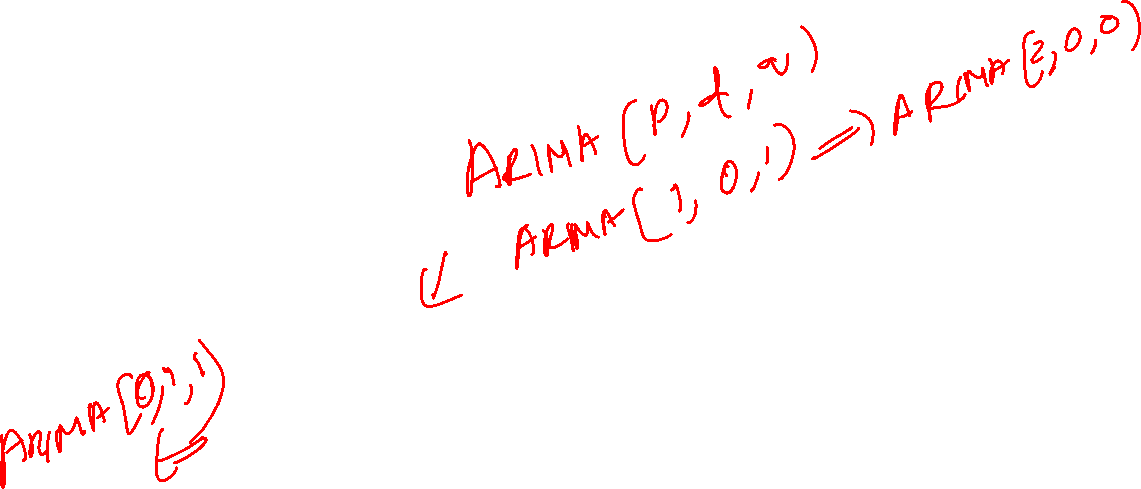 ARIMA(p,d,q)
ARMA(1,0,1) ⇒ ARIMA(2,0,0)
ARIMA(0,1,1)